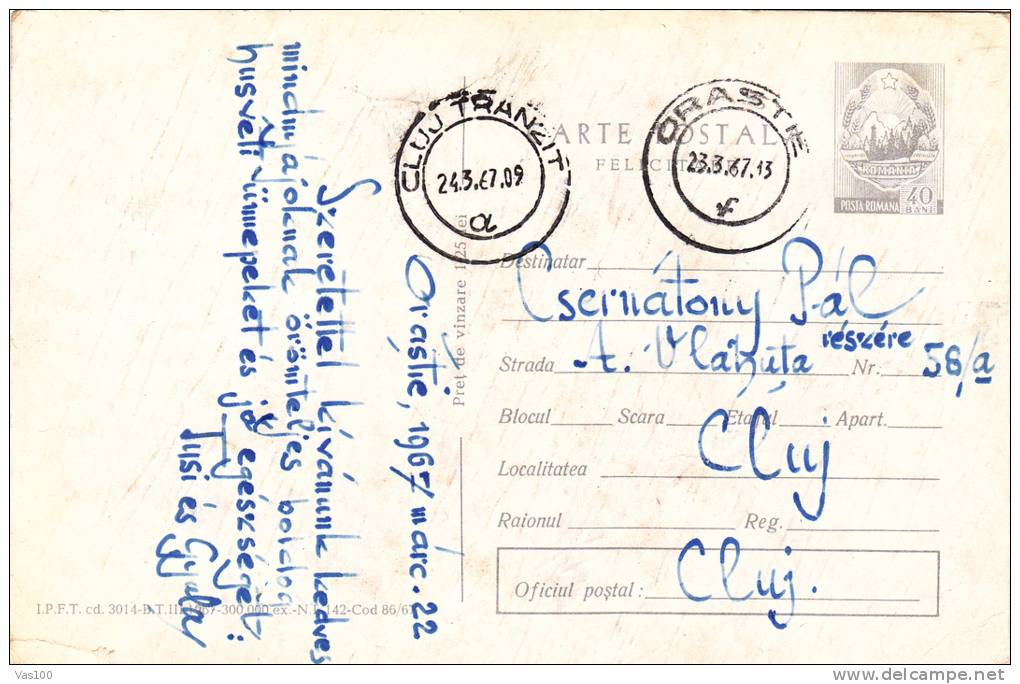 Orăștie, 1967 márc. 22
Szeretettel kívánunk kedves
mindnyájoknak örömteljes boldog
husvéti ünnepeket és jó egészséget:
Jusi és Gyula
CLUJ TRANZIT
24.3.67.09
a
ORASTIE
23.3.67.13
f
CARTE POSTALA
ROMANIA
POSTA ROMANA 40 BANI
Preț de vînzare 1,25 lei
Destinatar
Csernátony Pál
részére
Strada A. Vlăhuța Nr. 58/a
Blocul Scara Etajul Apart.
Localitatea Cluj
Raionul Reg.
Oficiul poștal: Cluj.
I.P.F.T. cd. 3014-B.T.III/1967-300.000 ex.-N.I. 142-Cod 86/67
Vas100
www.delcampe.net